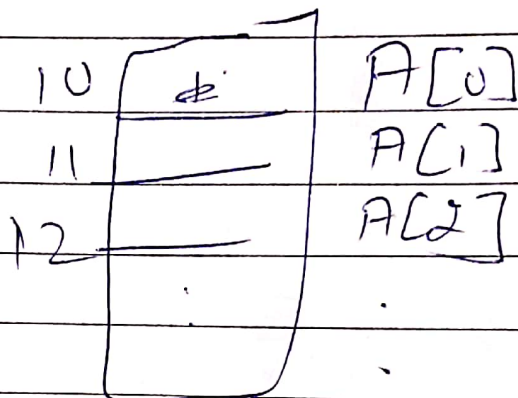 10 A[0]
11 A[1]
12 A[2]